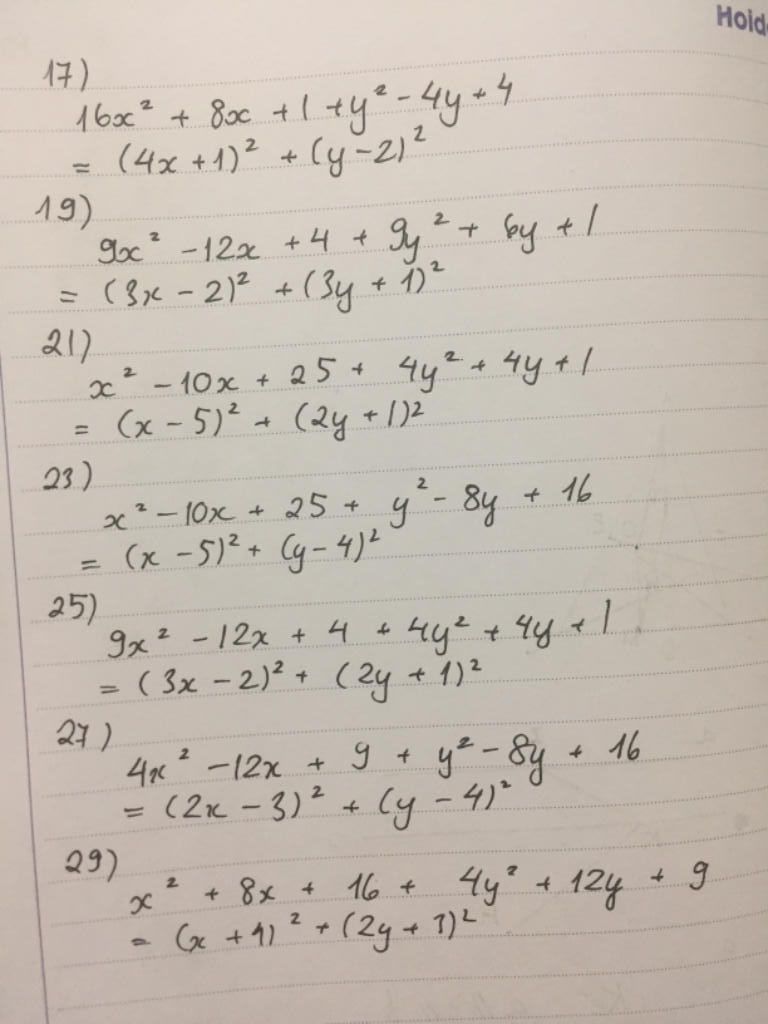 Hoid
17)
16x² + 8x + 1 + y² - 4y + 4
= (4x + 1)² + (y - 2)²
19)
9x² - 12x + 4 + 9y² + 6y + 1
= (3x - 2)² + (3y + 1)²
21)
x² - 10x + 25 + 4y² + 4y + 1
= (x - 5)² + (2y + 1)²
23)
x² - 10x + 25 + y² - 8y + 16
= (x - 5)² + (y - 4)²
25)
9x² - 12x + 4 + 4y² + 4y + 1
= (3x - 2)² + (2y + 1)²
27)
4x² - 12x + 9 + y² - 8y + 16
= (2x - 3)² + (y - 4)²
29)
x² + 8x + 16 + 4y² + 12y + 9
= (x + 4)² + (2y + 3)²